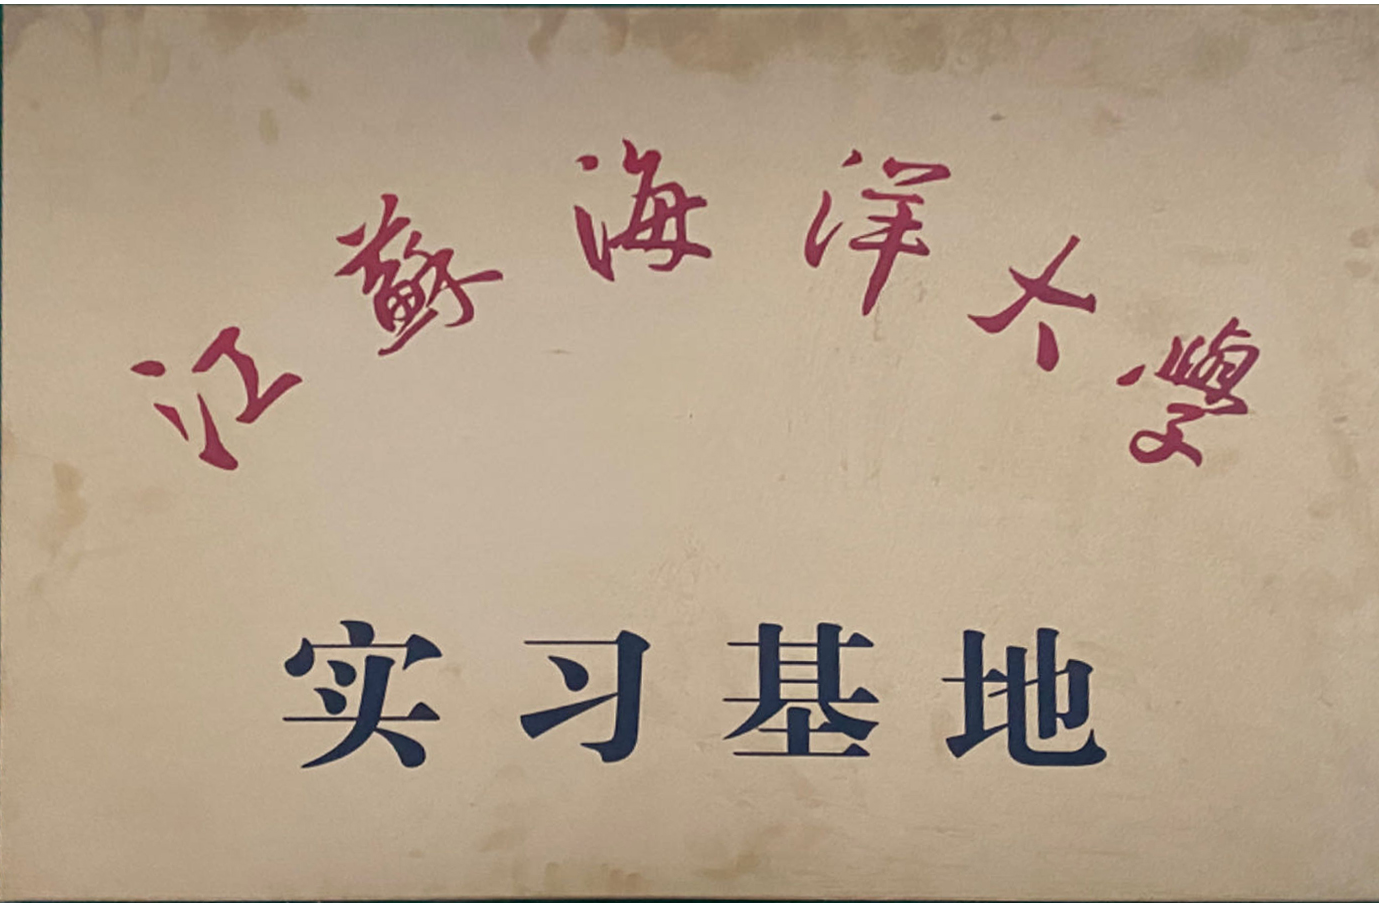 江蘇海洋大學
实习基地